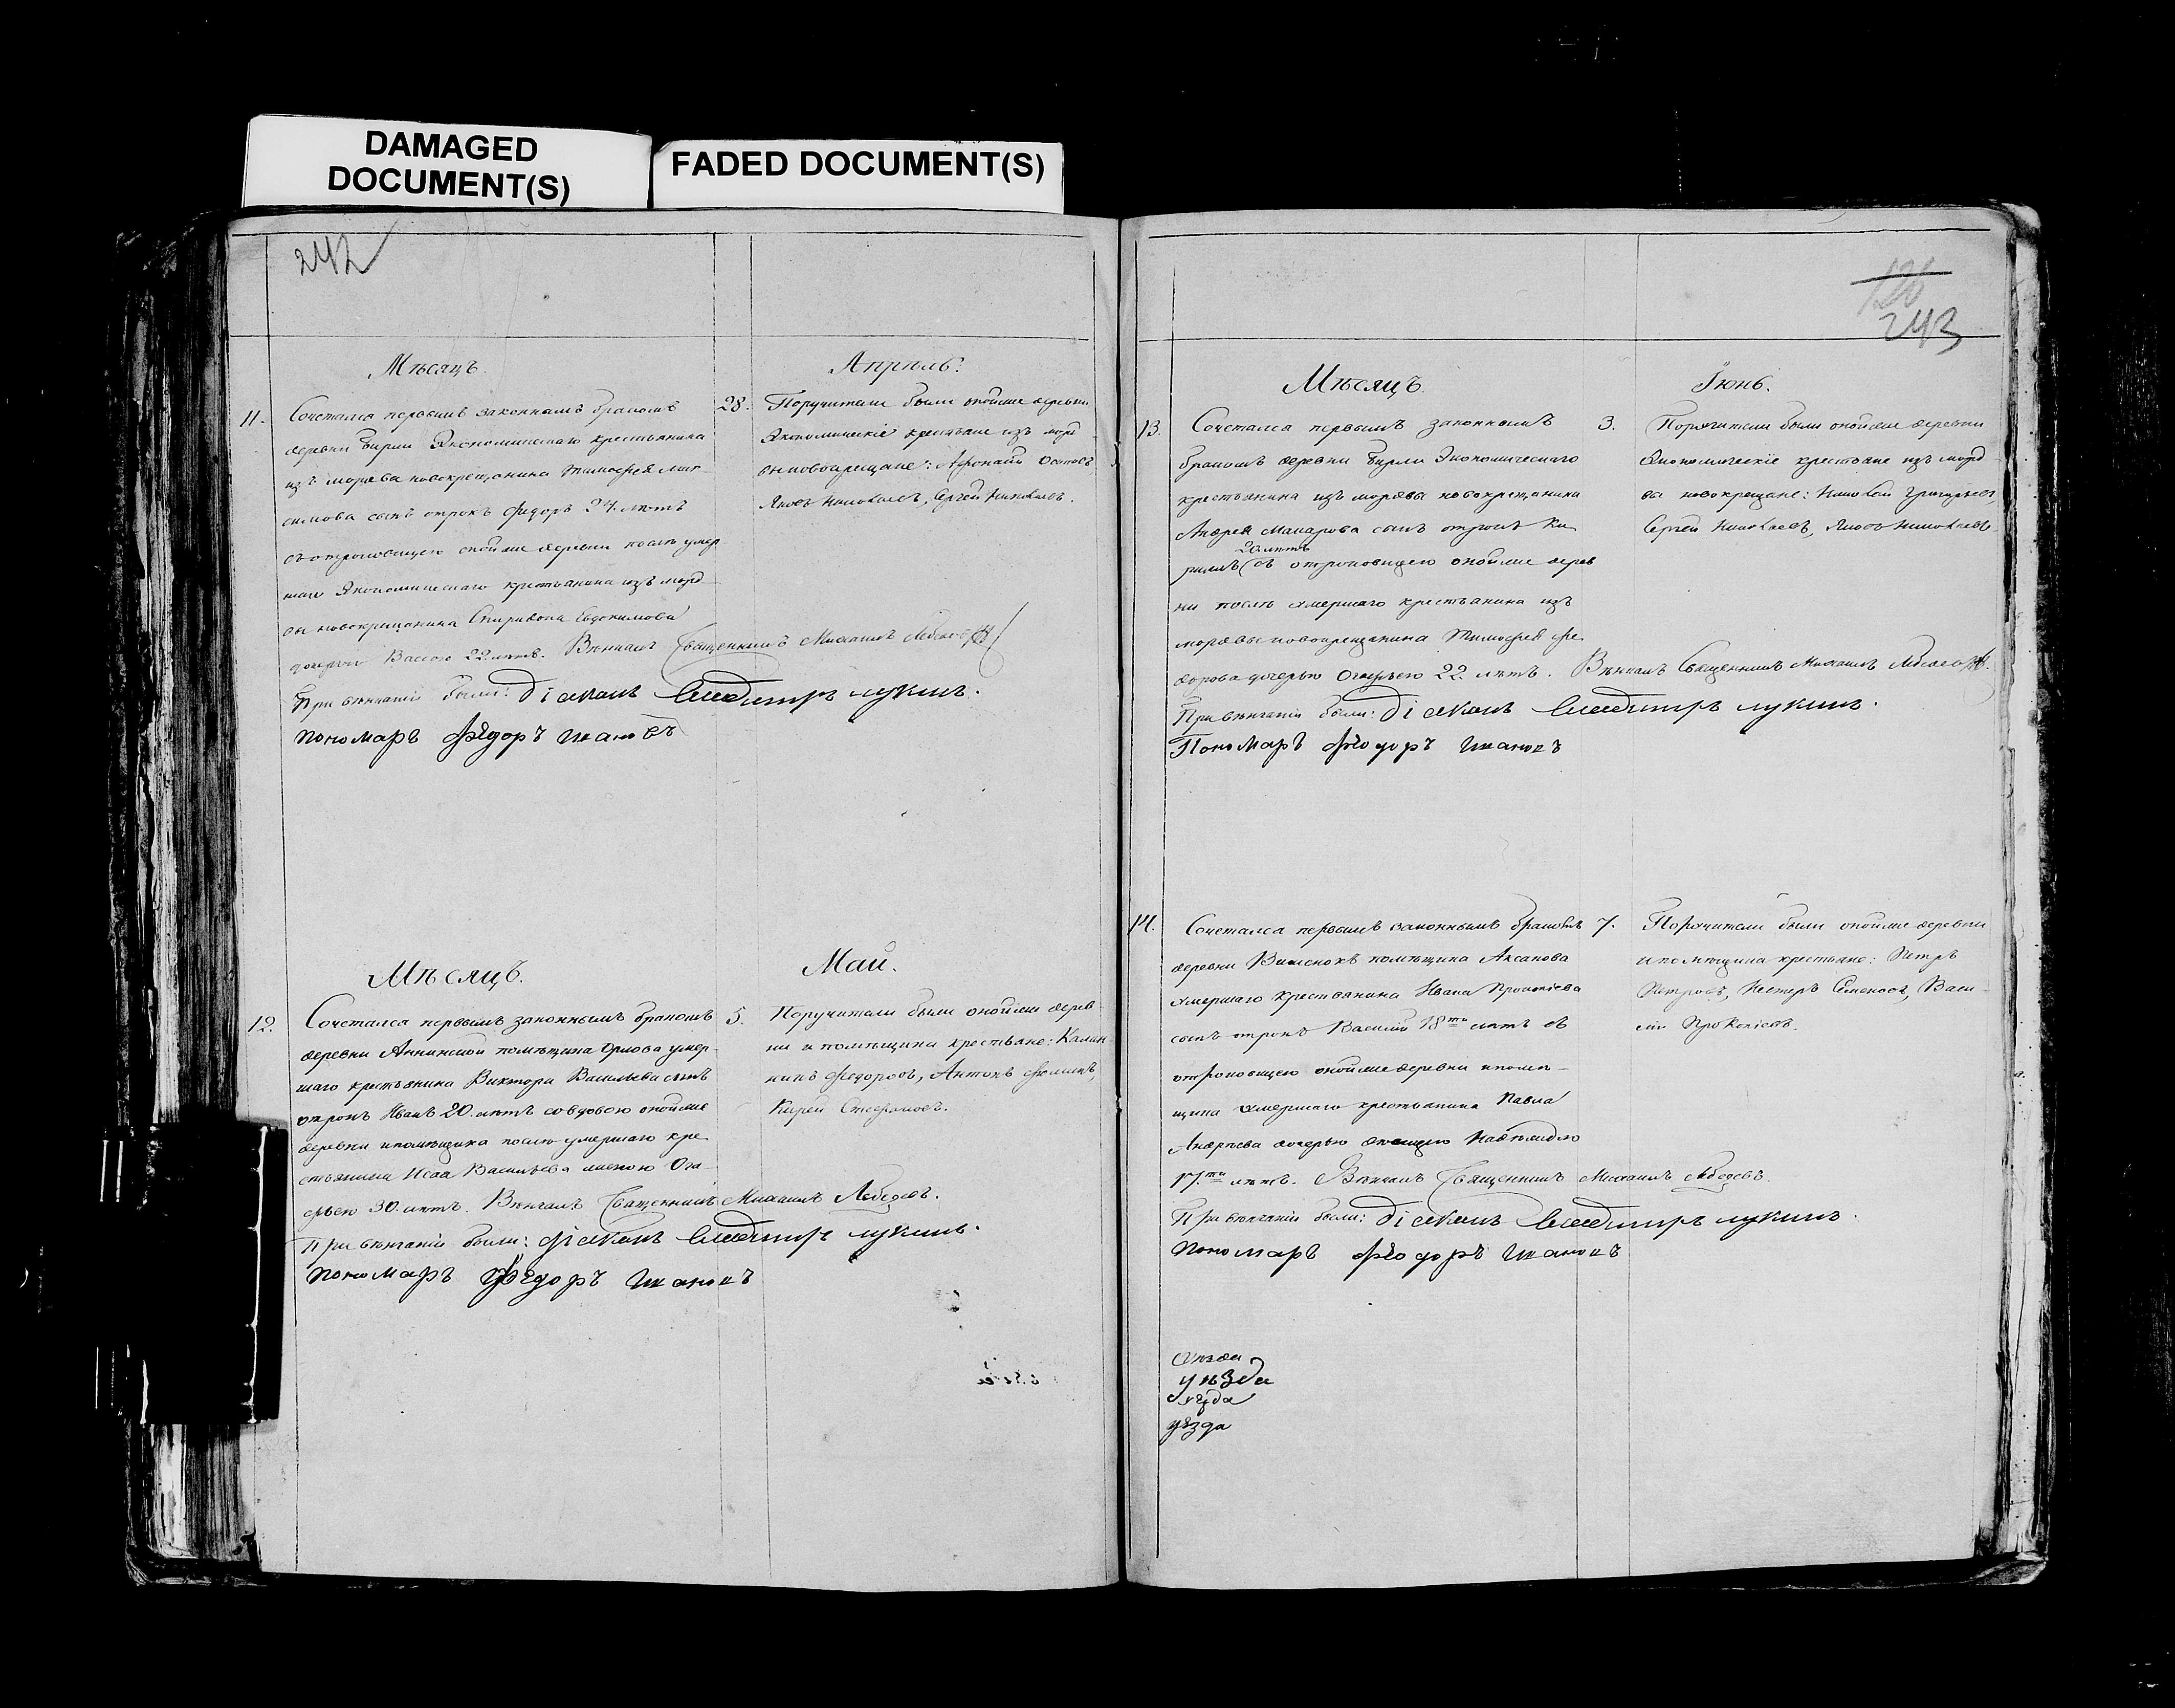 DAMAGED
DOCUMENT(S)
FADED DOCUMENT(S)
242
Мѣсяцъ.
Апрѣль.
11.
Сочетался первымъ законнымъ бракомъ
деревни Бирли Экономическаго крестьянина
изъ мордвы новокрещенина Тимофея Мак-
симова сынъ отрокъ Федоръ 24. лѣтъ
съ отроковицею оной же деревни послѣ умер-
шаго Экономическаго крестьянина изъ морд-
вы новокрещенина Спиридона Евдокимова
дочерью Вассою 22. лѣтъ. Вѣнчалъ Священникъ Михаилъ Лебедевъ
При вѣнчаніи были: діаконъ Владимиръ Лукинъ.
пономарь Федоръ Ивановъ
28.
Поручители были оной же деревни
Экономическіе крестьяне изъ морд-
вы новокрещане: Афонасій
Яковъ Николаевъ, Сергей Николаевъ.
Мѣсяцъ.
Май.
12.
Сочетался первымъ законнымъ бракомъ
деревни Аннинской помѣщика Орлова умер-
шаго крестьянина Виктора Васильева сынъ
отрокъ Иванъ 20. лѣтъ со вдовою оной же
деревни и помѣщика послѣ умершаго кре-
стьянина Исая Васильева женою Ога-
фьею 30. лѣтъ. Вѣнчалъ Священникъ Михаилъ Лебедевъ.
При вѣнчаніи были: діаконъ Владимиръ Лукинъ.
пономарь Федоръ Ивановъ
5.
Поручители были оной же дерев-
ни и помѣщика крестьяне: Калин-
никъ Федоровъ, Антонъ
Кирей Стефановъ.
120
243
Мѣсяцъ.
Іюнь.
13.
Сочетался первымъ законнымъ
бракомъ деревни Бирли Экономическаго
крестьянина изъ мордвы новокрещенина
Андрея Макарова сынъ отрокъ Ки-
20 лѣтъ
рилъ съ отроковицею оной же дерев-
ни послѣ умершаго крестьянина изъ
мордвы новокрещенина Тимофея Фе-
дорова дочерью 22 лѣтъ. Вѣнчалъ Священникъ Михаилъ Лебедевъ.
При вѣнчаніи были: діаконъ Владимиръ Лукинъ.
Пономарь Феодоръ Ивановъ
3.
Поручители были оной же деревни
Экономическіе крестьяне изъ морд-
вы новокрещане: Николай Григорьевъ,
Сергей Николаевъ, Яковъ Николаевъ
14.
Сочетался первымъ законнымъ бракомъ
деревни помѣщика Аксакова
умершаго крестьянина Ивана Прокопіева
сынъ отрокъ Василій 18ти лѣтъ съ
отроковицею оной же деревни и помѣ-
щика умершаго крестьянина Павла
Андреева дочерью девицею
17.ти лѣтъ. Вѣнчалъ Священникъ Михаилъ Лебедевъ.
При вѣнчаніи были: діаконъ Владимиръ Лукинъ.
пономарь Феодоръ Ивановъ
7.
Поручители были оной же деревни
и помѣщика крестьяне: Петръ
Петровъ, Нестеръ Семеновъ, Васи-
лій Прокопіевъ.
уѣзда
уѣзда
уѣзда
уѣзда